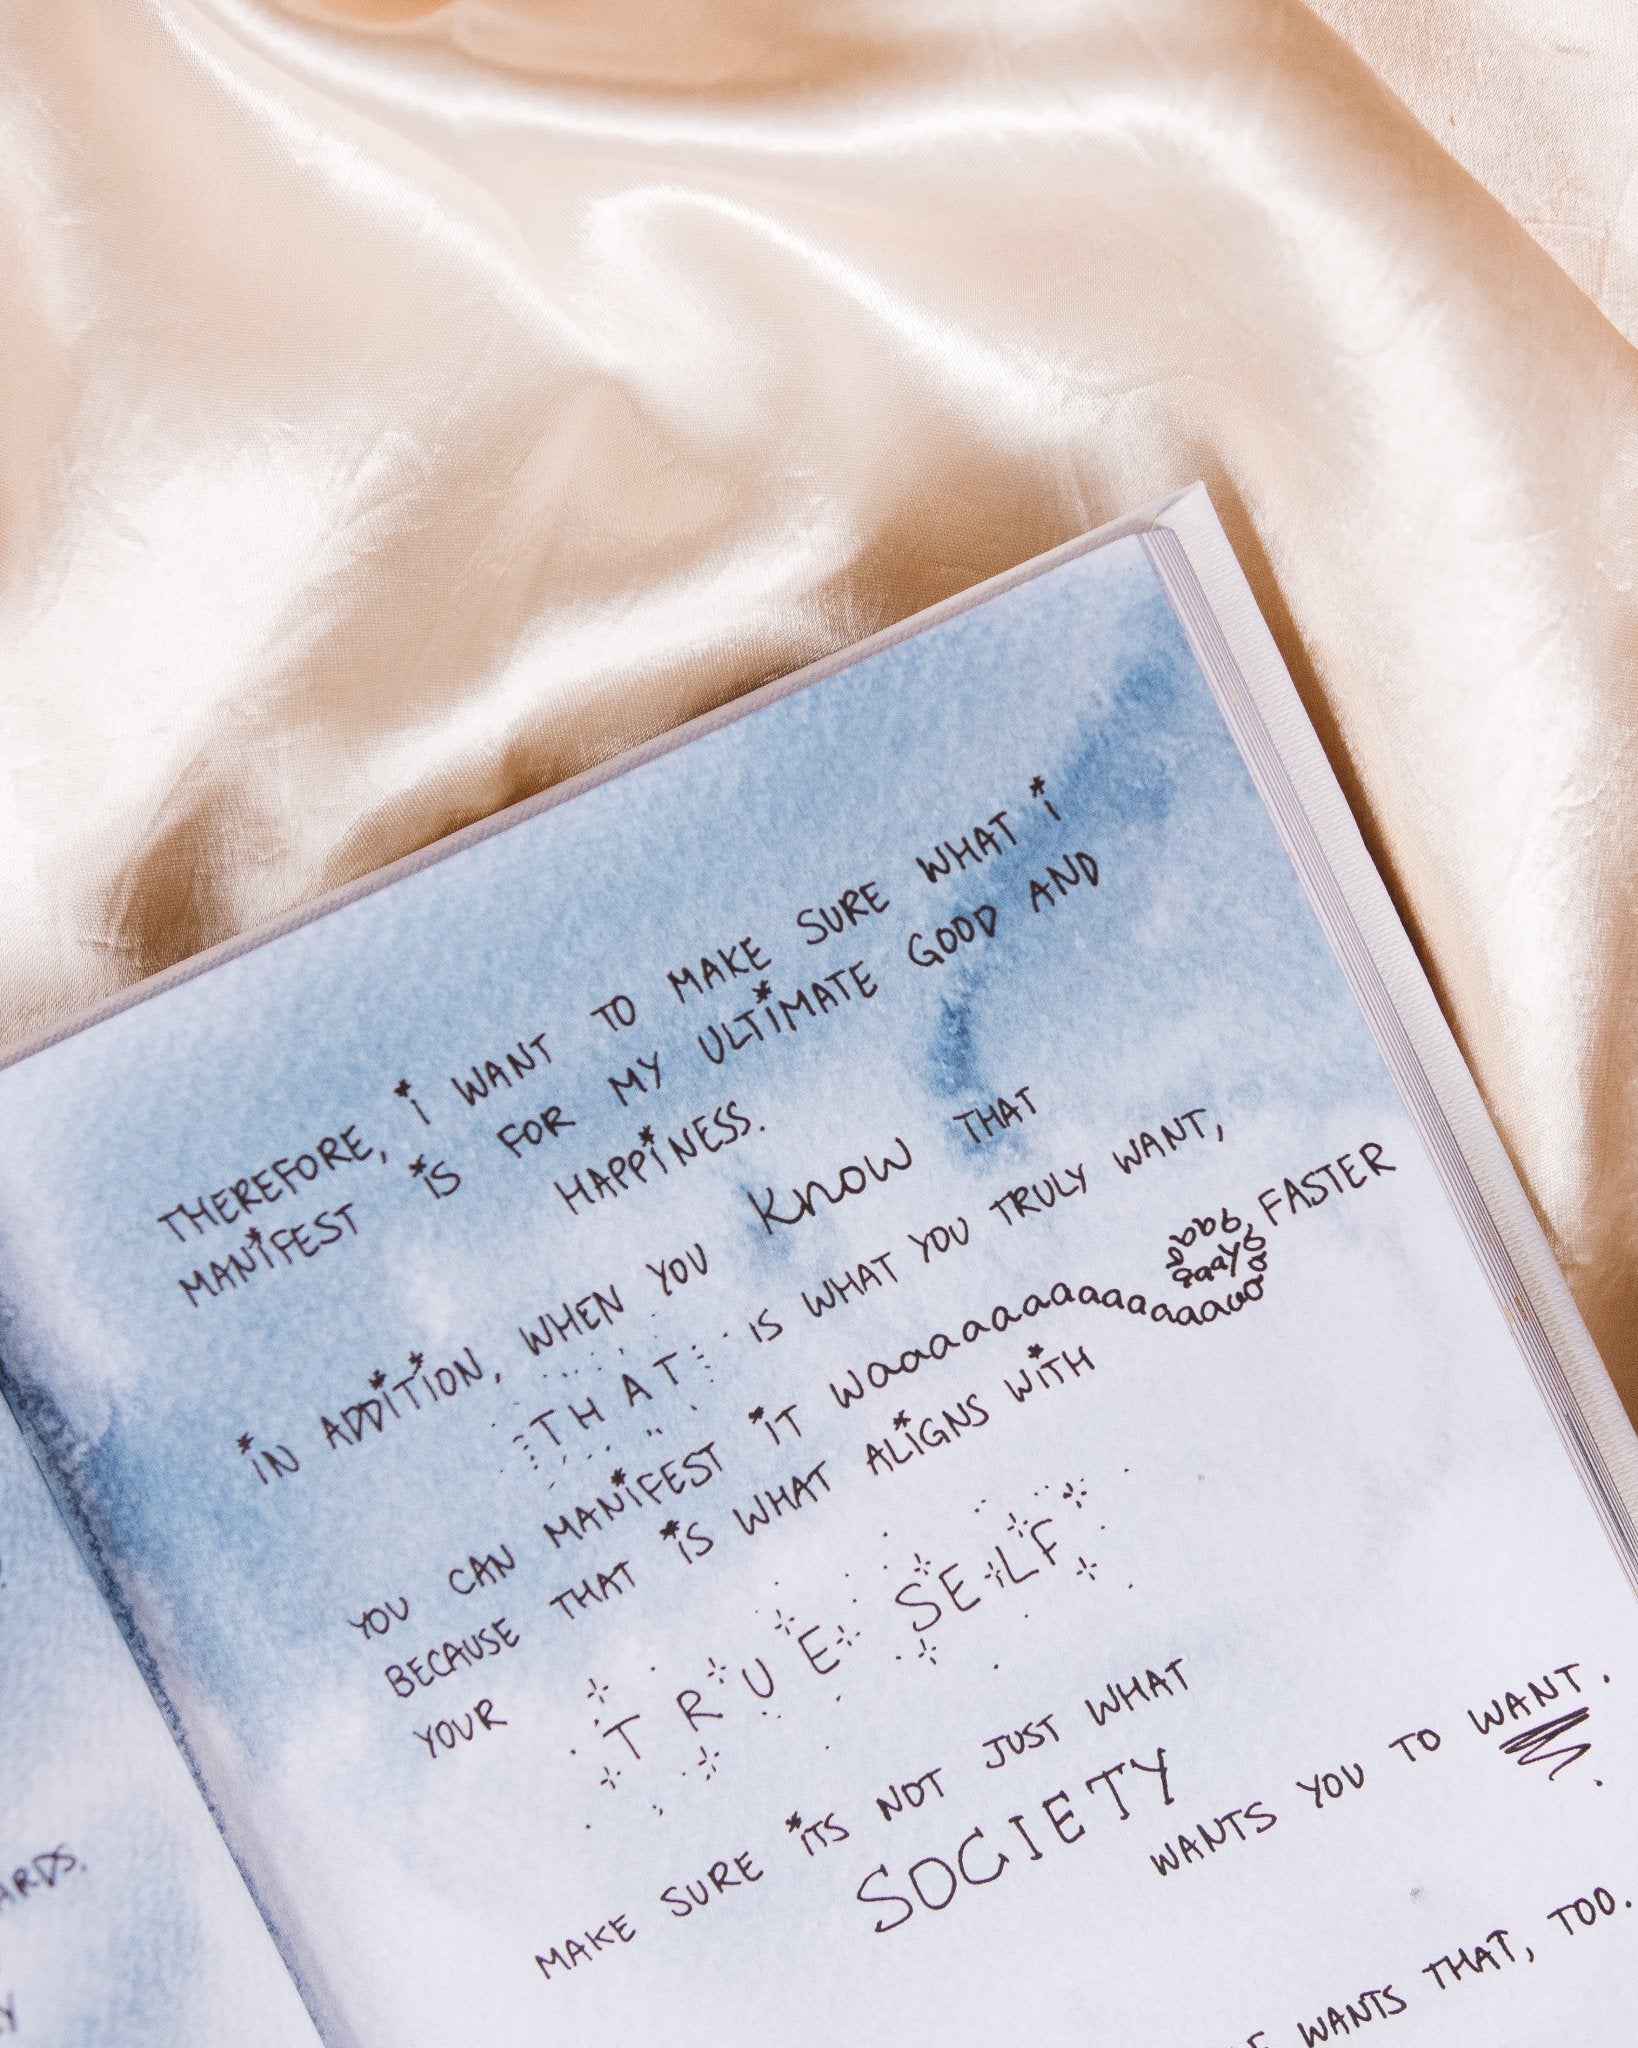 THEREFORE, I WANT TO MAKE SURE WHAT I
MANIFEST IS FOR MY ULTIMATE GOOD AND
HAPPINESS.
IN ADDITION, WHEN YOU KNOW THAT
THAT IS WHAT YOU TRULY WANT,
YOU CAN MANIFEST IT FASTER
BECAUSE THAT IS WHAT ALIGNS WITH
YOUR TRUE SELF
MAKE SURE ITS NOT JUST WHAT
SOCIETY
WANTS YOU TO WANT.
WANTS THAT, TOO.